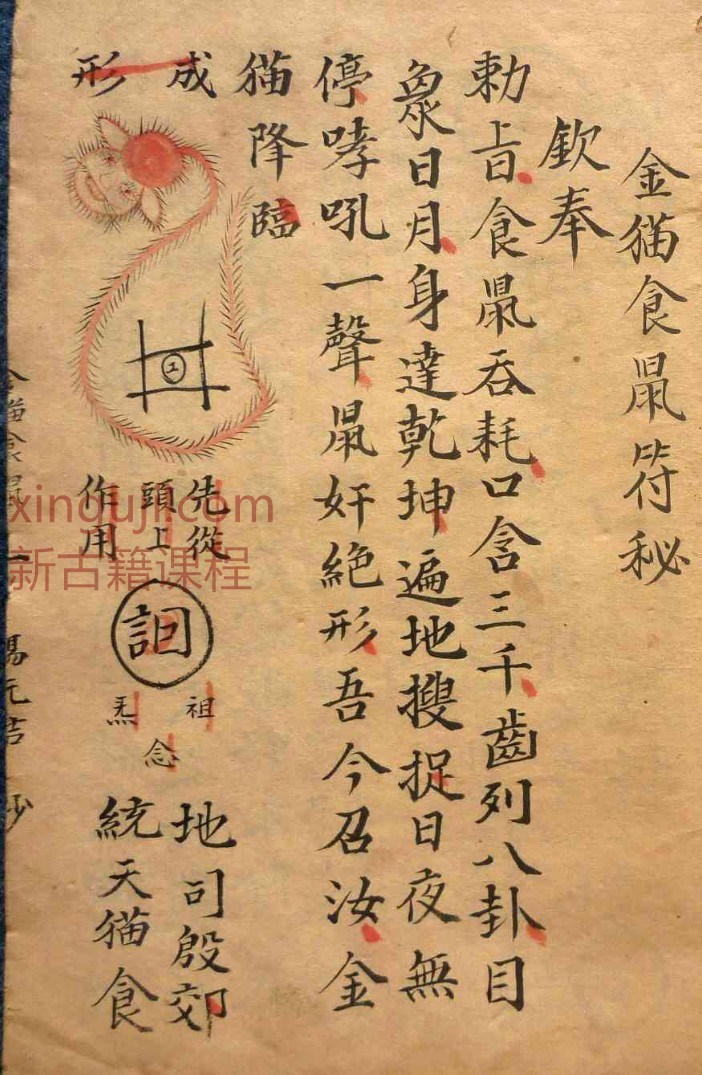 金猫食鼠符秘
欽奉
勅旨食鼠吞耗口含三千齒列八卦目
象日月身達乾坤遍地搜捉日夜無
停哮吼一聲鼠奸絕形吾今召汝金
猫降臨
成
形
先從
頭上
作用
祖
炁
念
地司殷郊
統天猫食
xinguji.com
新古籍课程